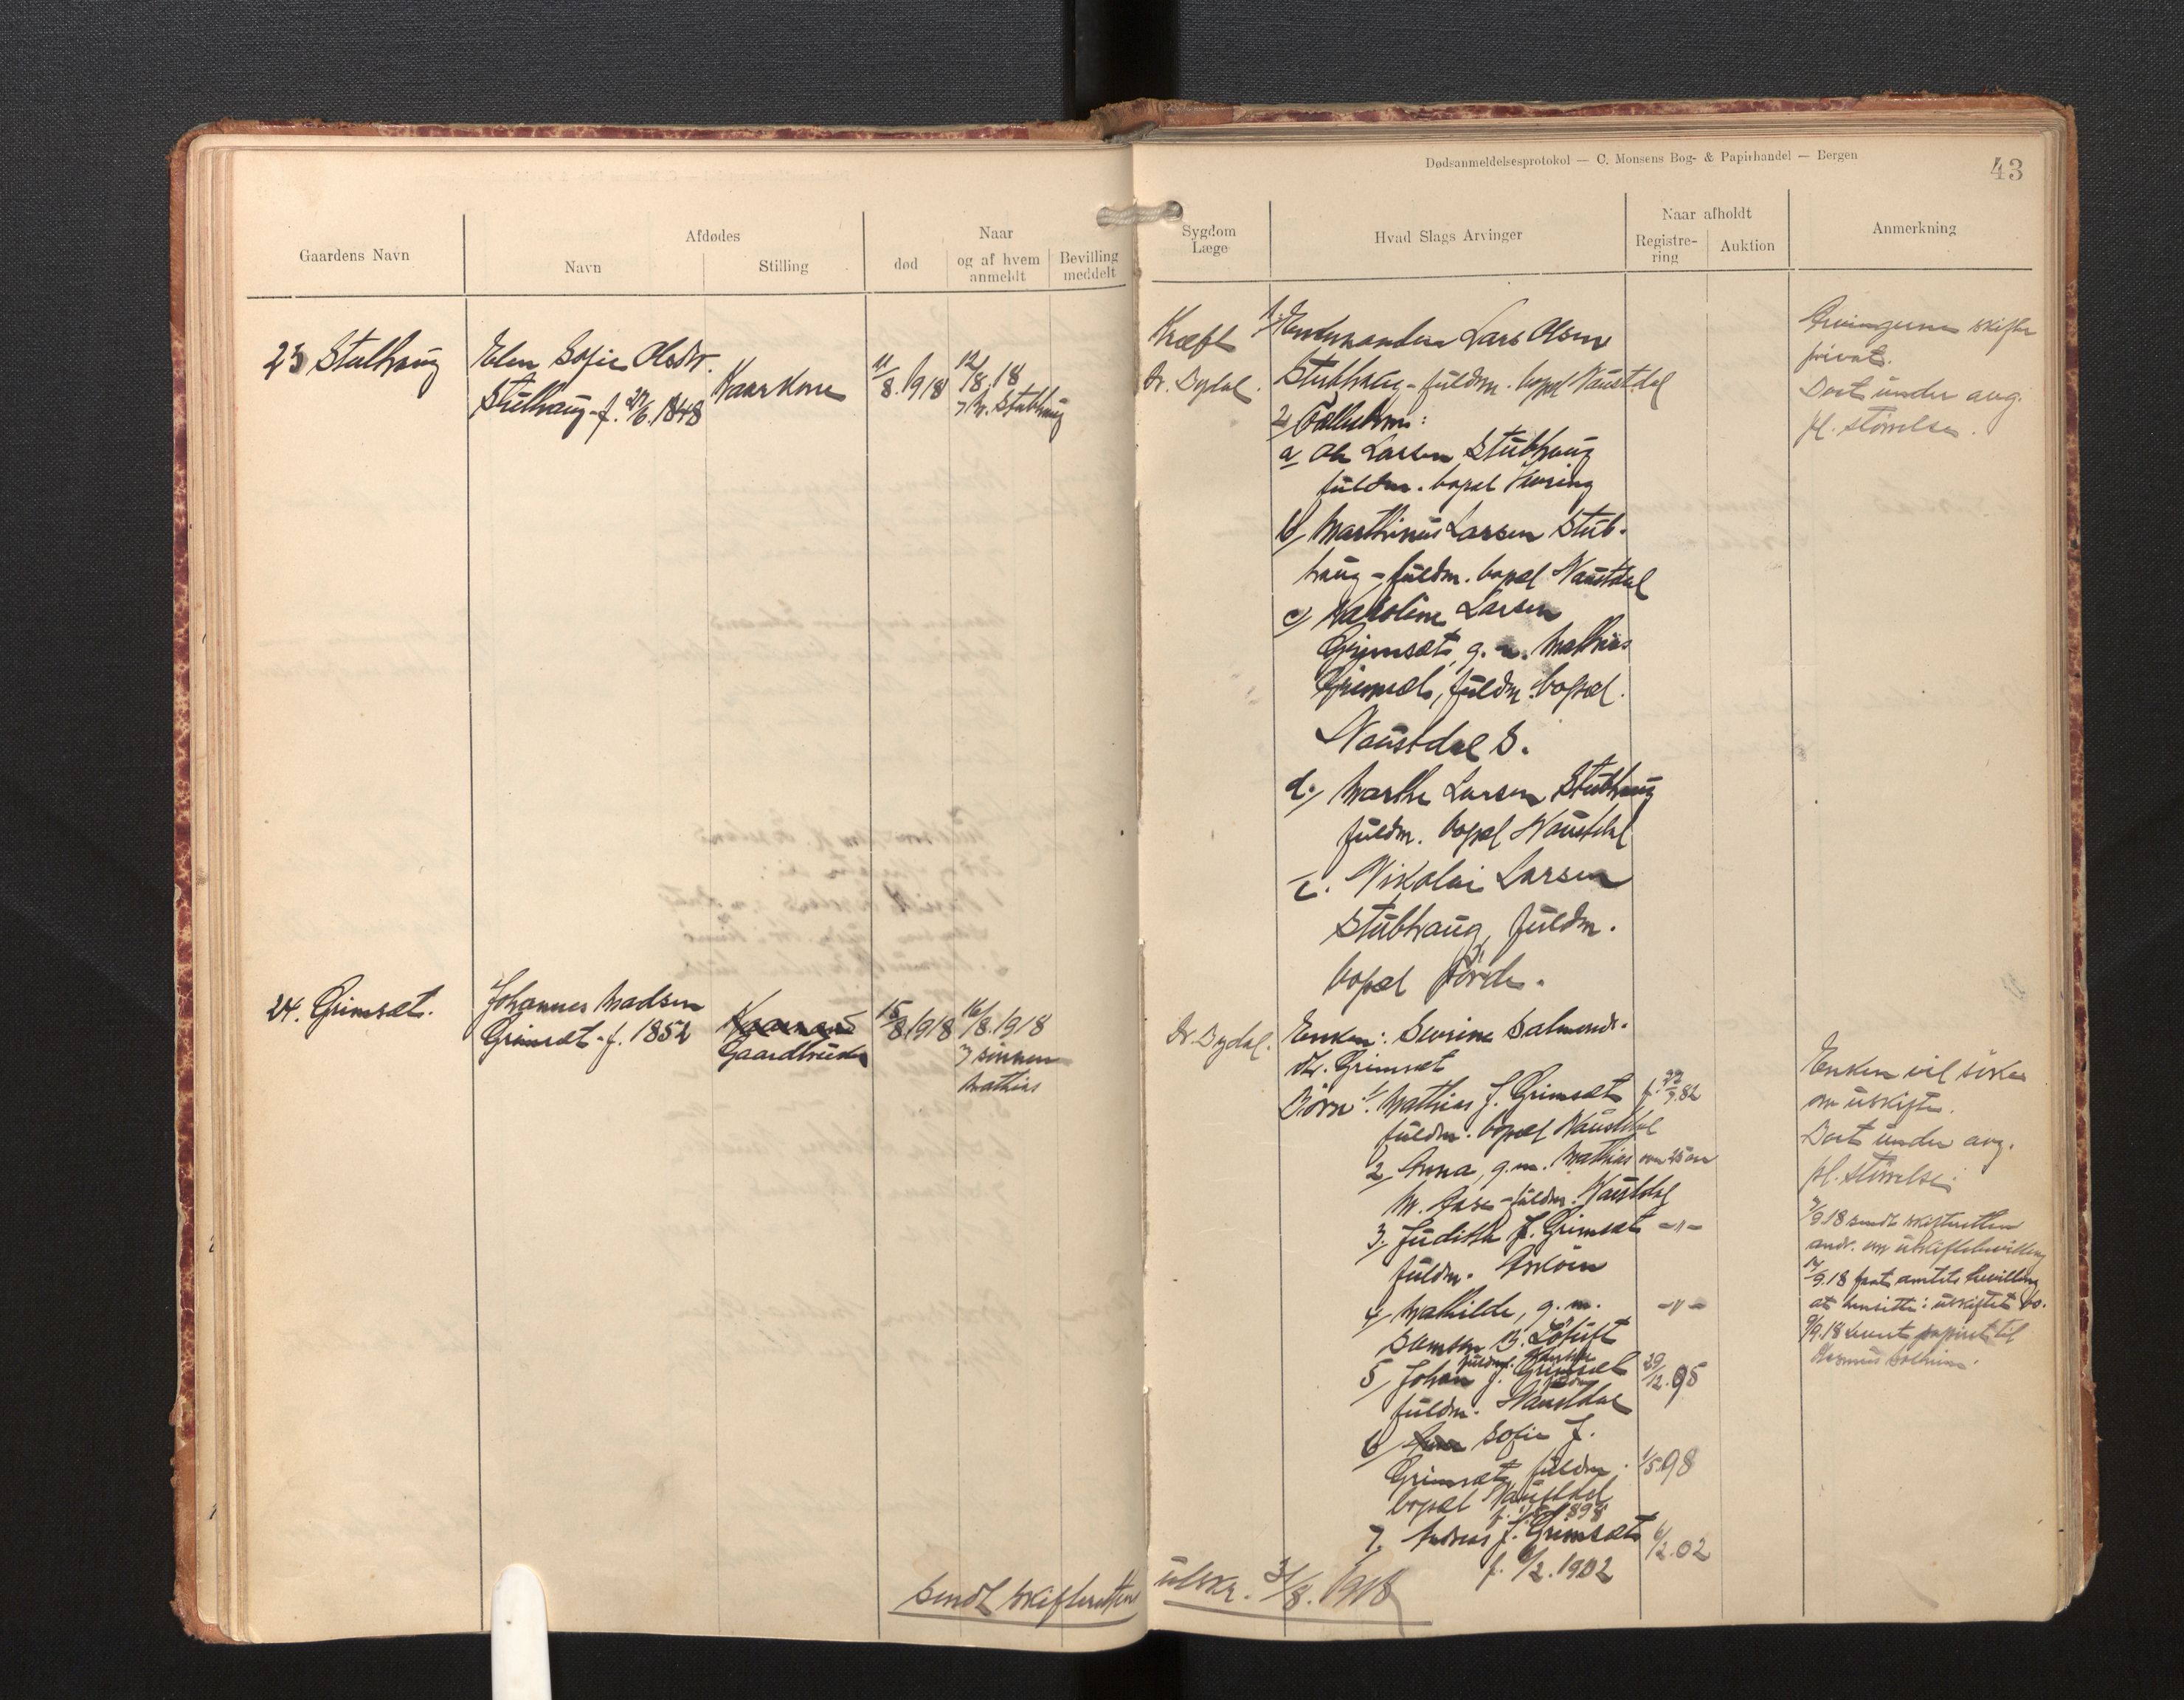 Dødsanmeldelsesprotokol — C. Monsens Bog- & Papirhandel — Bergen
43
Gaardens Navn
Afdødes
Navn
Stilling
Naar
død
og af hvem anmeldt
Bevilling meddelt
Sygdom
Læge
Hvad Slags Arvinger
Naar afholdt
Registre-
ring
Auktion
Anmerkning
23 Stubhaug
Elen Sofie Olsdtr.
Stubhaug - f. 27/6.1848
Kaarkone
11/8.1918
12/8.18
Stubhaug
Kræft
Dr. Dydal.
1. Enkemanden Lars Olsen
Stubhaug - fuldm. bopæl Naustdal
2/ Fællesbørn:
a/ Ole Larsen Stubhaug
fuldm. bopæl
b/ Marthinus Larsen Stub-
haug - fuldm. bopæl Naustdal
c/ Karoline Larsen
Grimsæt, g. m. Mathias
Grimsæt, fuldm. bopæl.
Naustdal S.
d./ Marthe Larsen Stubhaug
fuldm. bopæl Naustdal
e. Nikolai Larsen
Stubhaug, fuldm.
bopæl Førde.
Arvingerne skifter
privat.
Døit under aug.
pl. størrelse.
24. Grimsæt.
Johannes Madsen
Grimsæt - f. 1852
Kaarmand
Gaardbruker
15/8 1918
16/8.1918
sønnen
Mathias
Dr. Dydal.
Enken: Severine Salmonds-
dtr. Grimsæt
Børn: 1/ Mathias J. Grimsæt
fuldm. bopæl Naustdal
2/ Anna, g. m. Mathias over 25 aar
M. Aase - fuldm. Naustdal
3. Judith J. Grimsæt -"-
fuldm. Askøen
4/ Mathilde, g. m. -"-
Samson
5/ Johan J. Grimsæt 29/12.95
fuldm. Naustdal
6/ Sofie J.
Grimsæt, fuldm. 1/5.98
bopæl Naustdal
7. Andreas J. Grimsæt 6/2.02
f. 6/2.1902
Enken vil søke
om uskifte.
under aug.
pl. størrelse.
9.18 sendt skifteretten
andr. om uskiftebevilling
9.18 faat amtets bevilling
at hensitte i uskiftet bo.
9.18 papiret til
Rasmus Solheim.
Sendt skifteretten utskr. 31/8.1918